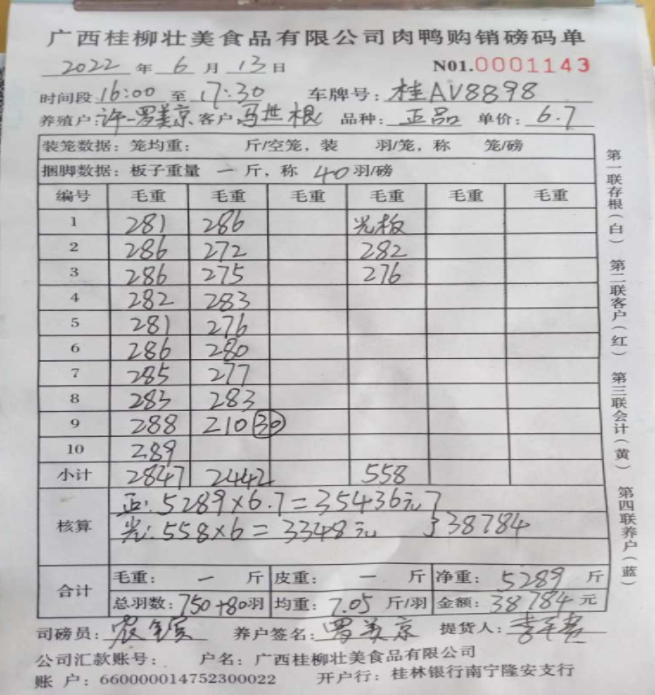 广西桂柳壮美食品有限公司肉鸭购销磅码单
2022 年 6 月 13 日 N01.0001143
时间段 16:00 至 17:30 车牌号: 桂AV8898
养殖户: 许一罗美京 客户 马世根 品种: 正品 单价: 6.7
装笼数据: 笼均重: 斤/空笼, 装 羽/笼, 称 笼/磅
捆脚数据: 板子重量 一 斤, 称 40 羽/磅
编号 毛重 毛重 毛重 毛重 毛重 毛重
1 281 286 光板
2 286 272 282
3 286 275 276
4 282 283
5 281 276
6 286 280
7 285 277
8 283 283
9 288 210 30
10 289
小计 2847 2442 558
核算
正: 5289×6.7=35436元
光: 558×6=3348元 38784
合计
毛重: 一 斤 皮重: 一 斤 净重: 5289 斤
总羽数: 750+80羽 均重: 7.05 斤/羽 金额: 38784 元
司磅员: 养户签名: 罗美京 提货人:
公司汇款账号: 户名: 广西桂柳壮美食品有限公司
账 户: 660000014752300022 开户行: 桂林银行南宁隆安支行
第一联存根(白) 第二联客户(红) 第三联会计(黄) 第四联养户(蓝)